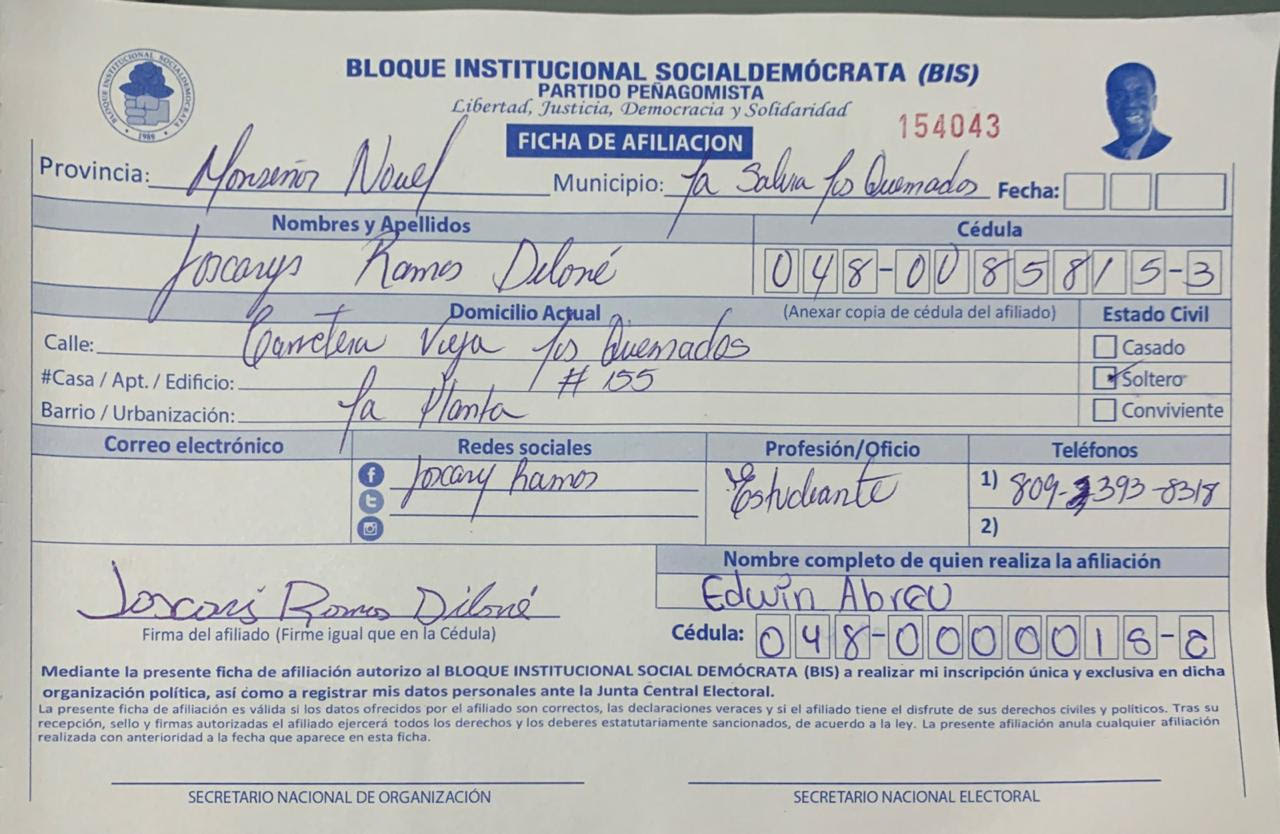 BLOQUE INSTITUCIONAL SOCIALDEMÓCRATA
1989
BLOQUE INSTITUCIONAL SOCIALDEMÓCRATA (BIS)
PARTIDO PEÑAGOMISTA
Libertad, Justicia, Democracia y Solidaridad
154043
FICHA DE AFILIACION
Provincia: Monseñor Nouel Municipio: La Salvia Los Quemados Fecha:
Nombres y Apellidos Cédula
Joscarys Ramos Diloné 048-0085815-3
Domicilio Actual (Anexar copia de cédula del afiliado) Estado Civil
Calle: Carretera Vieja Los Quemados Casado
#Casa / Apt. / Edificio: # 155 Soltero
Barrio / Urbanización: La Planta Conviviente
Correo electrónico Redes sociales Profesión/Oficio Teléfonos
Joscary Ramos Estudiante 1) 809-393-8318
2)
Nombre completo de quien realiza la afiliación
Edwin Abreu
Joscaris Ramos Diloné
Firma del afiliado (Firme igual que en la Cédula) Cédula: 048-0000018-
Mediante la presente ficha de afiliación autorizo al BLOQUE INSTITUCIONAL SOCIAL DEMÓCRATA (BIS) a realizar mi inscripción única y exclusiva en dicha
organización política, así como a registrar mis datos personales ante la Junta Central Electoral.
La presente ficha de afiliación es válida si los datos ofrecidos por el afiliado son correctos, las declaraciones veraces y si el afiliado tiene el disfrute de sus derechos civiles y políticos. Tras su
recepción, sello y firmas autorizadas el afiliado ejercerá todos los derechos y los deberes estatutariamente sancionados, de acuerdo a la ley. La presente afiliación anula cualquier afiliación
realizada con anterioridad a la fecha que aparece en esta ficha.
SECRETARIO NACIONAL DE ORGANIZACIÓN SECRETARIO NACIONAL ELECTORAL